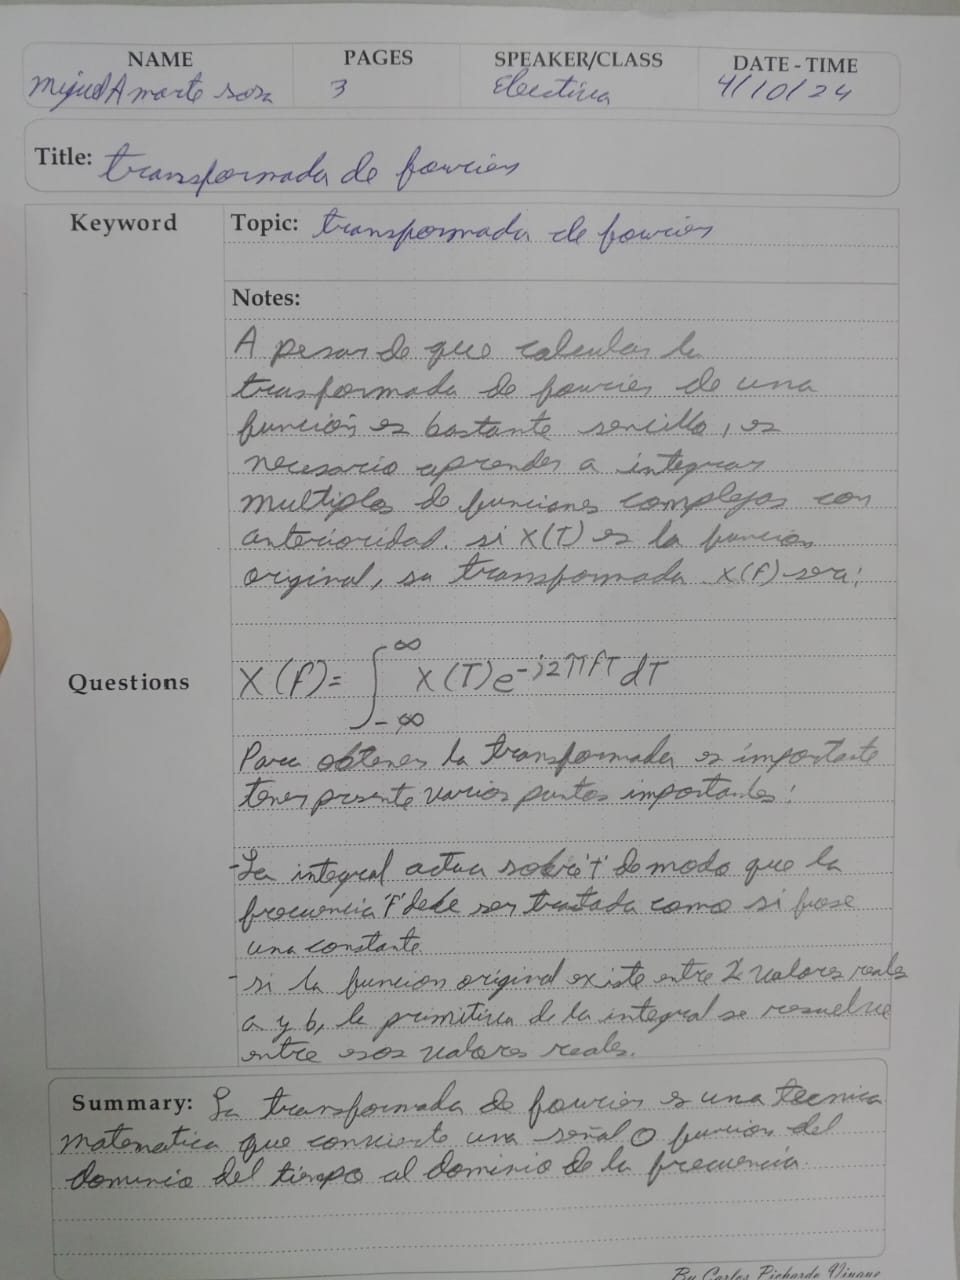 NAME PAGES SPEAKER/CLASS DATE - TIME
Miguel A marte sosa 3 Electiva 4/10/24
Title: transformada de fourier
Keyword
Topic: transformada de fourier
Notes:
A pesar de que calcular la
trasformada de fourier de una
función es bastante sencillo, es
necesario aprender a integrar
multiplos de funciones complejas con
anterioridad. si X(T) es la funcion
original, su transformada X(f) sera:
Questions
X(f)= ∫_{-∞}^{∞} X(T)e^{-j2πfT} dT
Para obtener la transformada es importante
tener presente varios puntos importantes:
-La integral actua sobre 't' de modo que la
frecuencia 'f' debe ser tratada como si fuese
una constante
- si la funcion original existe entre 2 valores reales
a y b, la primitiva de la integral se resuelve
entre esos valores reales.
Summary: La transformada de fourier es una tecnica
matematica que convierte una señal o funcion del
dominio del tiempo al dominio de la frecuencia
By Carlos Pichardo